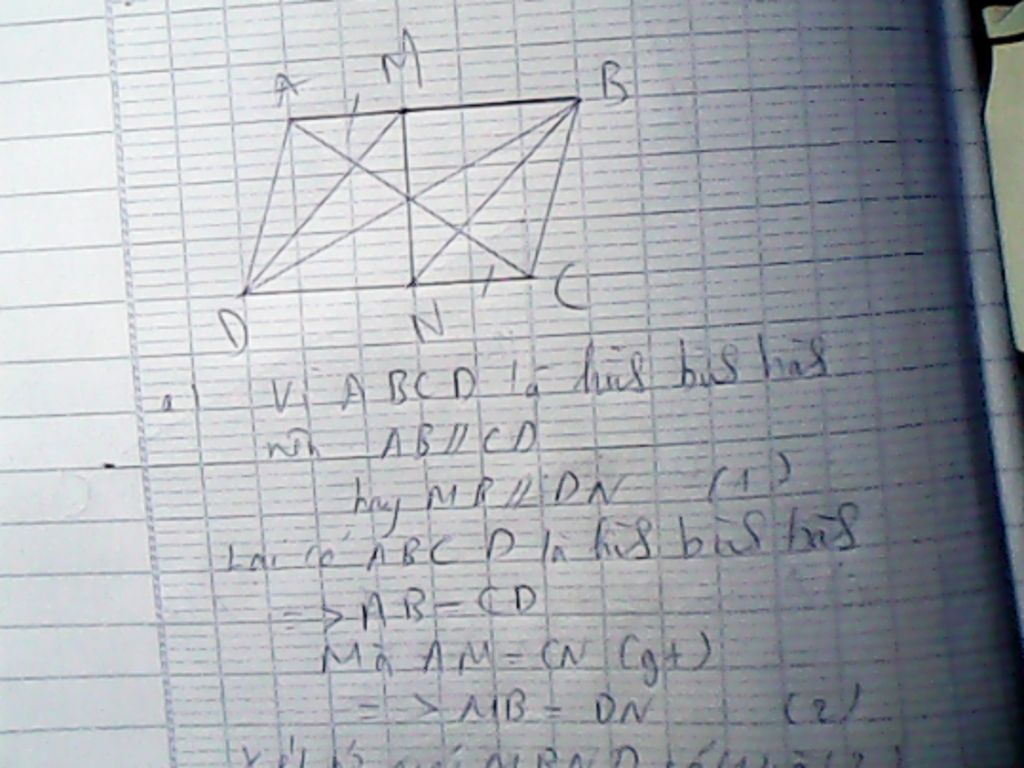 A M B
D N C
a) Vì ABCD là hình bình hành
nên AB // CD
hay MB // DN (1)
Lại có ABCD là hình bình hành
=> AB = CD
Mà AM = CN (gt)
=> MB = DN (2)